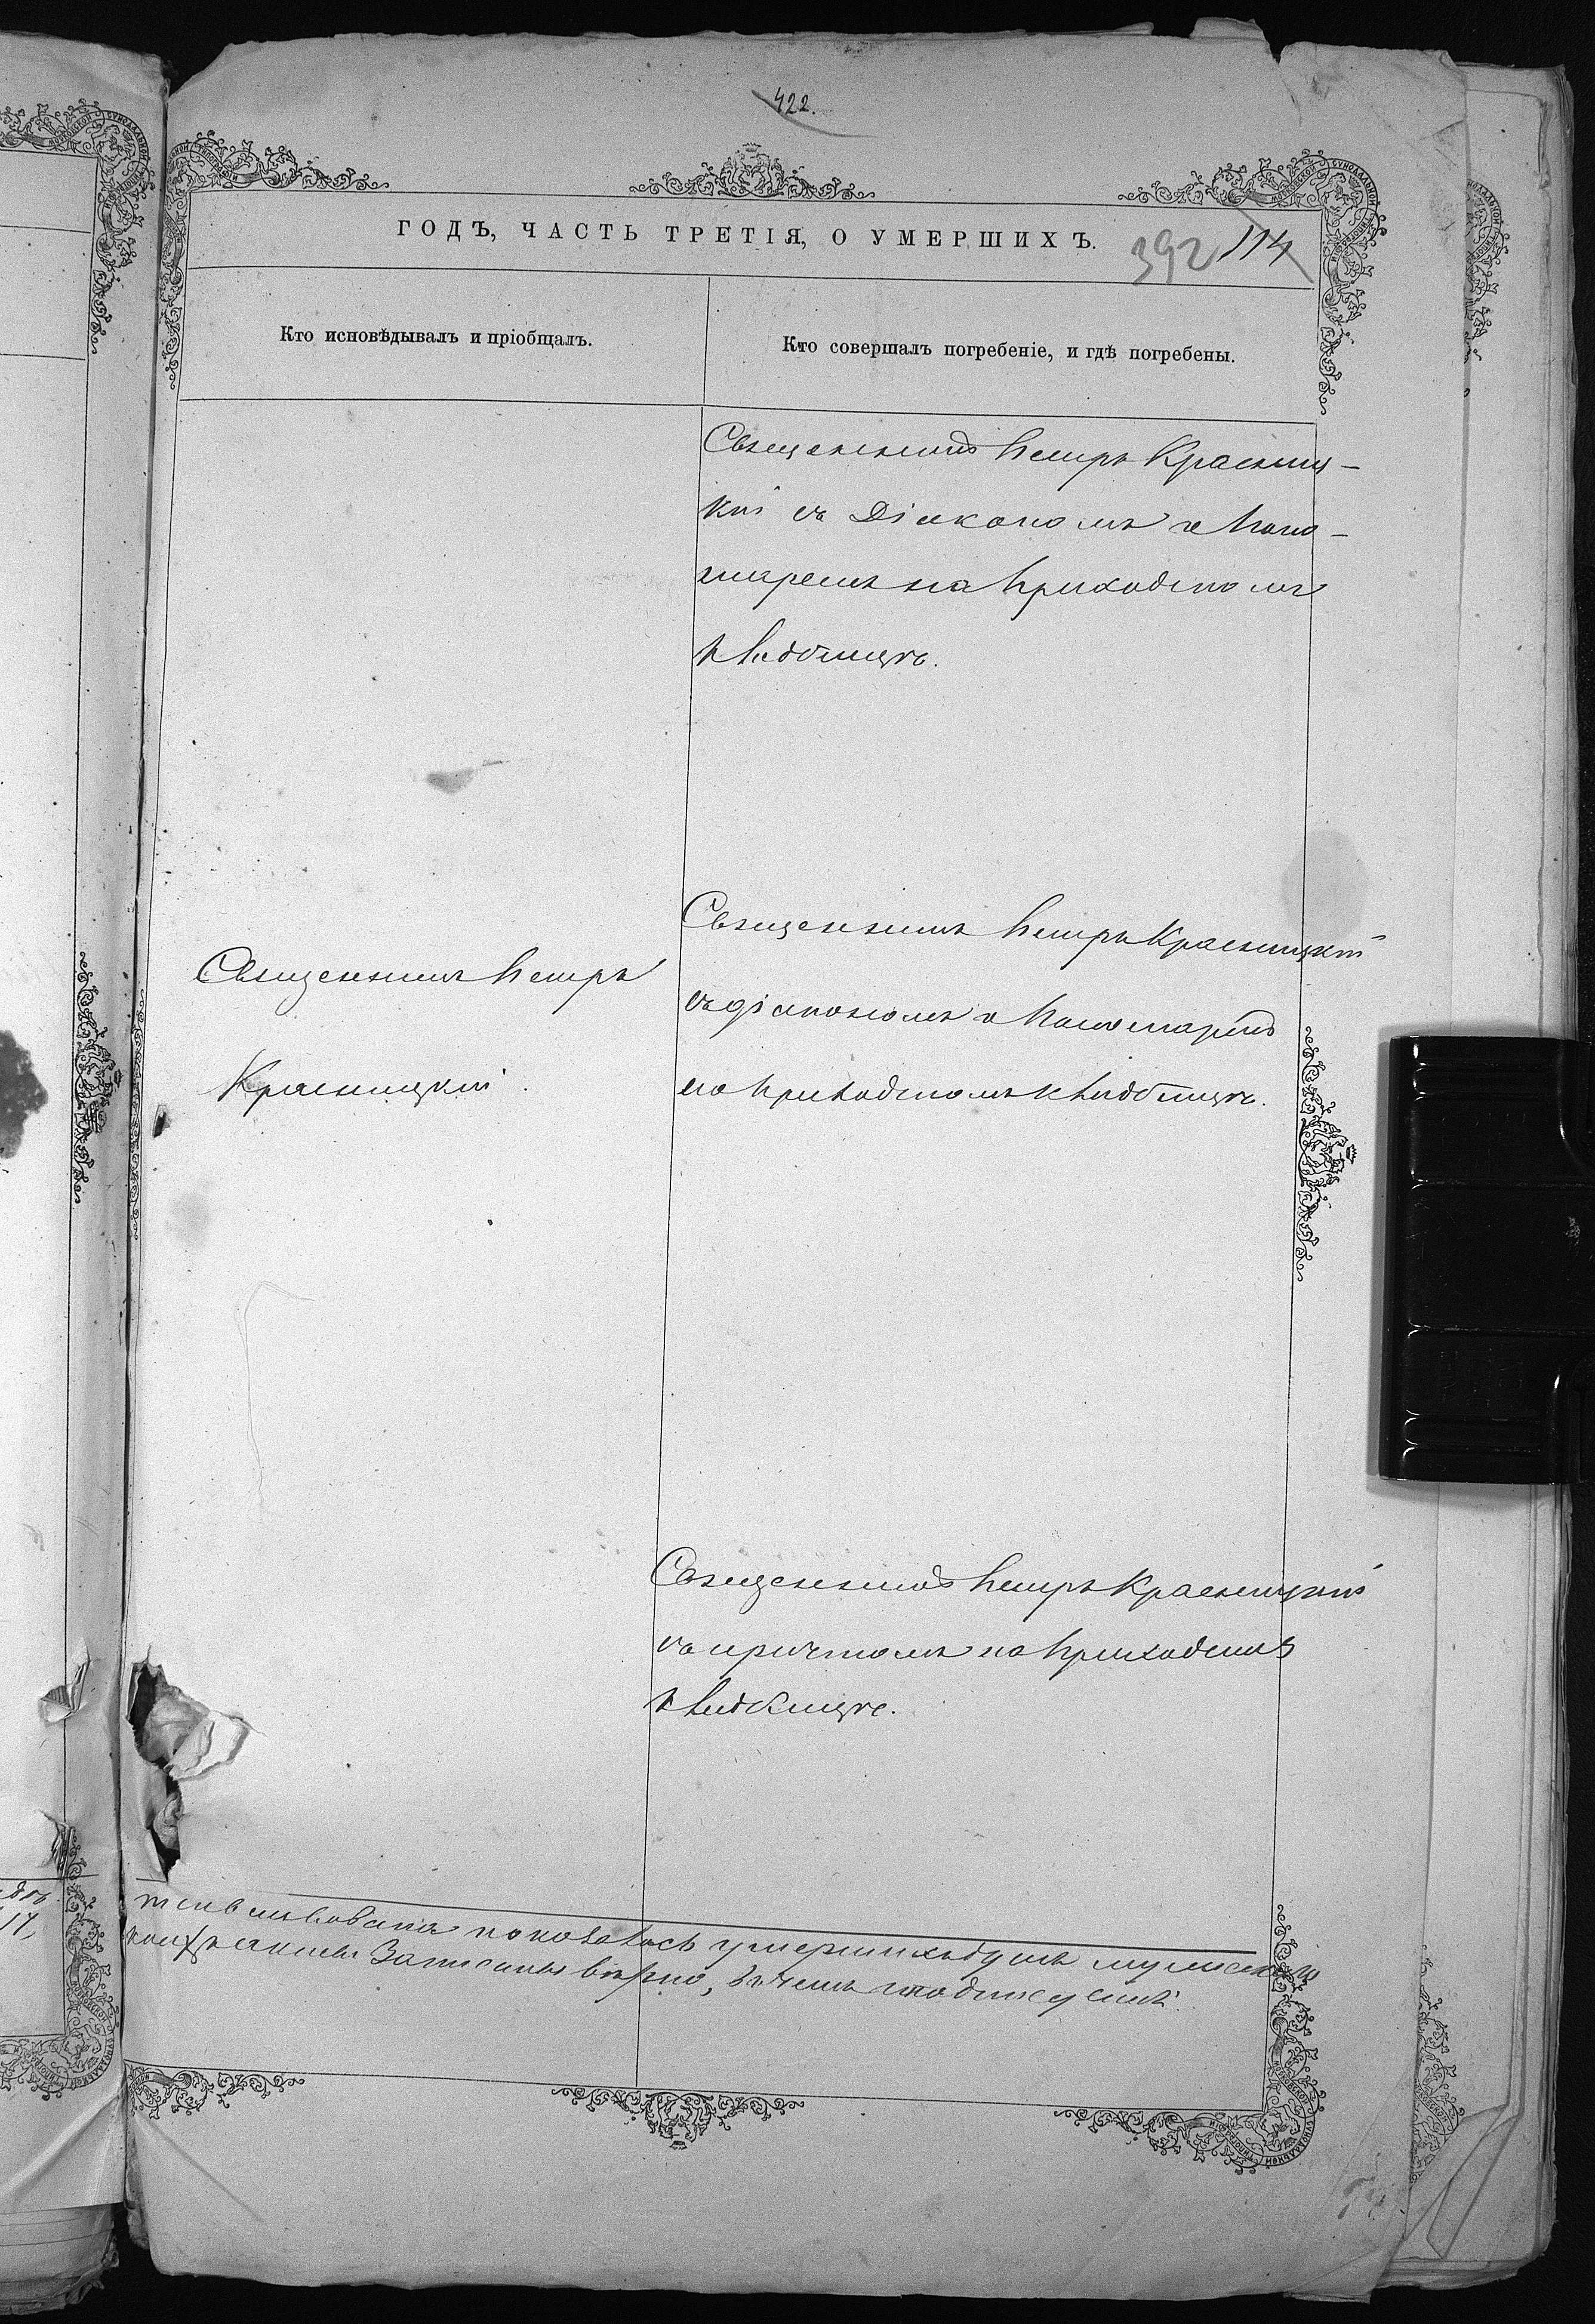 422.
ГОДЪ, ЧАСТЬ ТРЕТІЯ, О УМЕРШИХЪ.
392 114
Кто исповѣдывалъ и пріобщалъ.
Кто совершалъ погребеніе, и гдѣ погребены.
Священникъ Петръ Красниц-
кій съ Діакономъ и Поно-
маремъ на Приходскомъ
Кладбищѣ.
Священникъ Петръ
Красницкій.
Священникъ Петръ Красницкій
съ діакономъ и Пономаремъ
на Приходскомъ Кладбищѣ.
Священникъ Петръ Красницкій
съ причтомъ на Приходскомъ
Кладбищѣ.
умершихъ душъ
Записаны вѣрно, въ чемъ